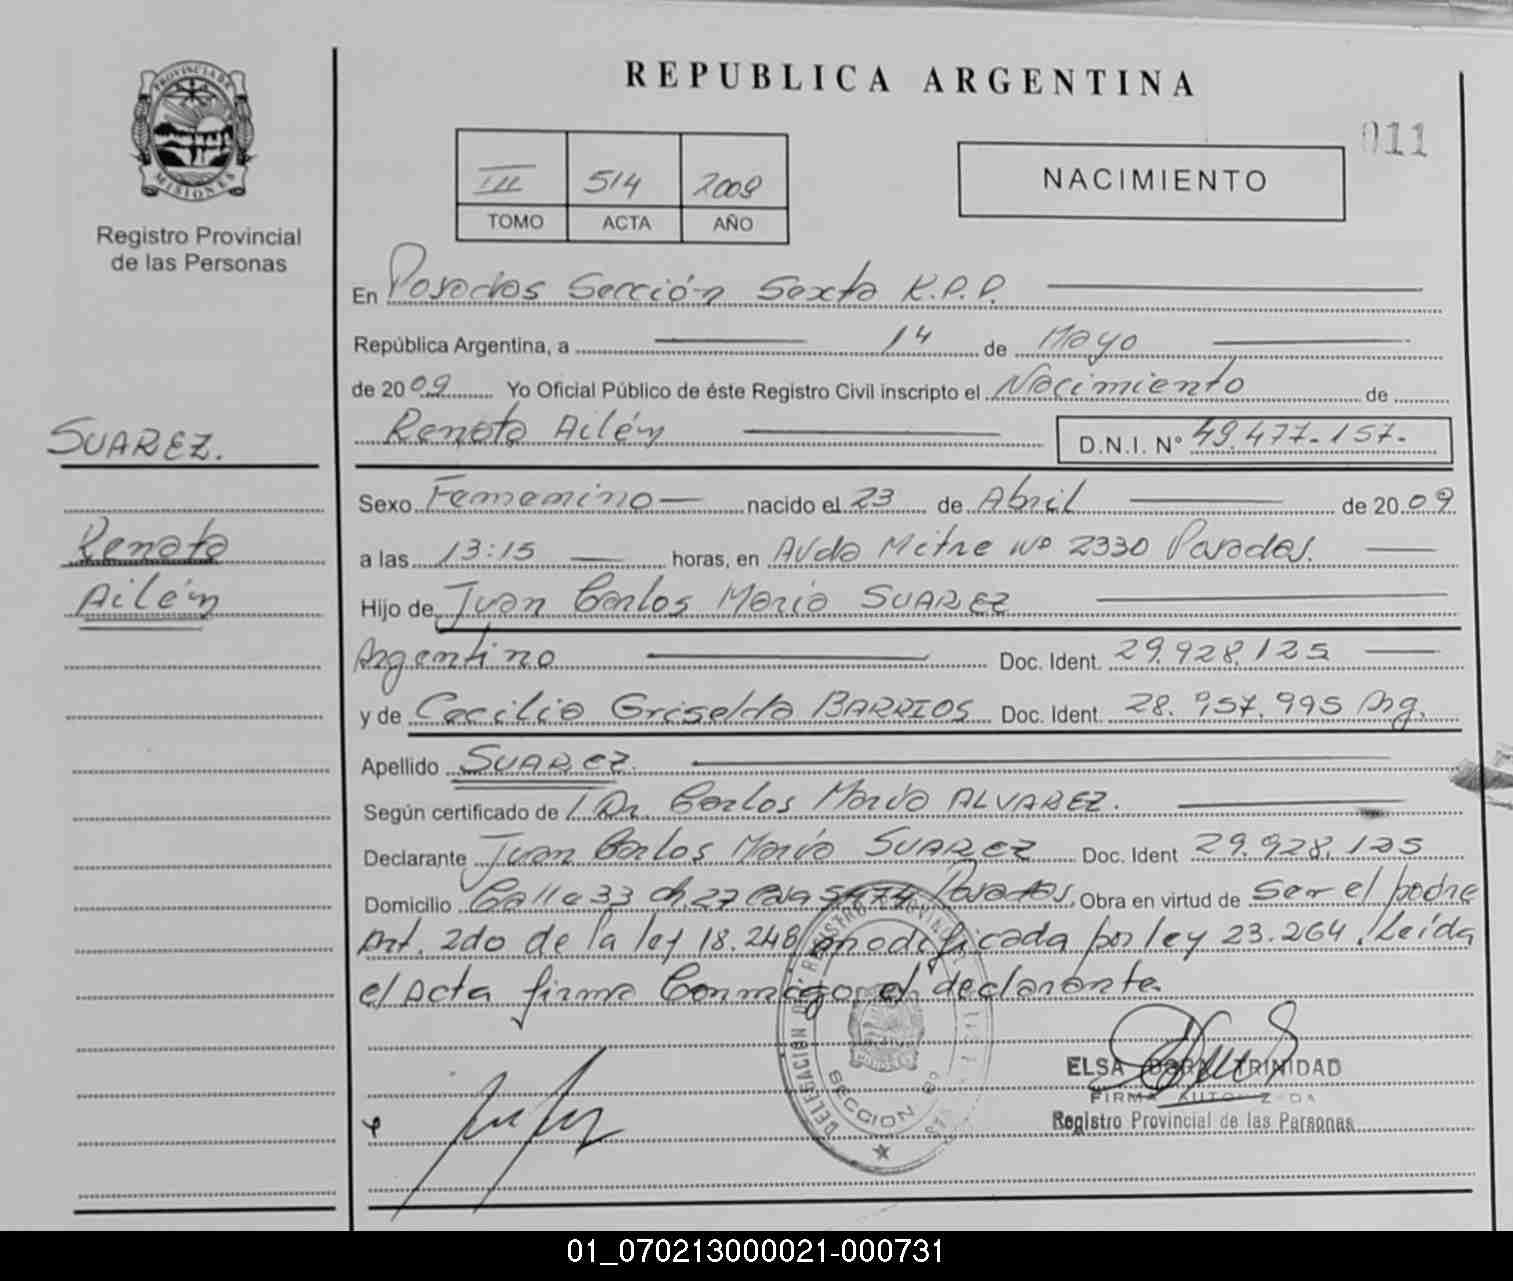 REPUBLICA ARGENTINA
011
PROVINCIA DE MISIONES
Registro Provincial
de las Personas
III 514 2009
TOMO ACTA AÑO
NACIMIENTO
En Posadas Sección Sexta R.P.P.
República Argentina, a 14 de Mayo
de 2009 Yo Oficial Público de éste Registro Civil inscripto el Nacimiento de
SUAREZ.
Renata Ailén D.N.I. Nº 49.477.157.
Sexo Femenino nacido el 23 de Abril de 2009
Renata
a las 13:15 horas, en Avda Mitre Nº 2330 Posadas.
Ailén
Hijo de Juan Carlos Mario SUAREZ
Argentino Doc. Ident. 29.928.125
y de Cecilia Griselda BARRIOS Doc. Ident. 28.957.995 Arg.
Apellido SUAREZ.
Según certificado de Dr. Carlos Mario ALVAREZ.
Declarante Juan Carlos Mario SUAREZ Doc. Ident 29.928.125
Domicilio Calle 33 ch. 27 Casa 5474 Posadas, Obra en virtud de Ser el padre
Art. 2do de la ley 18.248 modificada por ley 23.264. Leída
el Acta firma Conmigo el declarante.
DELEGACION REGISTRO PROVINCIAL
SECCION 6º
ELSA DORA TRINIDAD
FIRMA AUTORIZADA
Registro Provincial de las Personas
01_070213000021-000731